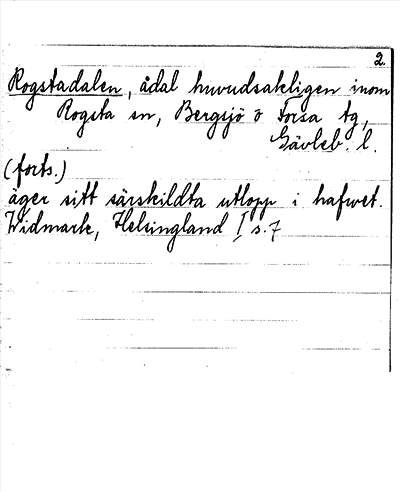 2.
Rogstadalen, ådal huvudsakligen inom
Rogsta sn, Bergsjö o Forsa tg,
Gävleb. l.
(forts.)
äger sitt särskildta utlopp i hafwet.
Widmark, Helsingland I s. 7